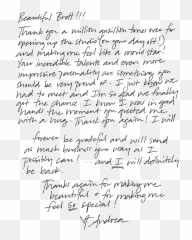 Beautiful Brett!!!
Thank you a million zillion times over for
opening up the studio (on your day off!)
and making me feel like a movie star!
Your incredible talents and even more
impressive personality are something you
should be very proud of. I just knew we
had to meet and I'm so glad we finally
got the chance. I knew I was in good
hands the moment you greeted me
with a hug. Thank you again! I will
forever be grateful and will send
as much business your way as I
possibly can! ... and I will definitely
be back.
Thanks again for making me
beautiful & for making me
feel so special!
Andrea